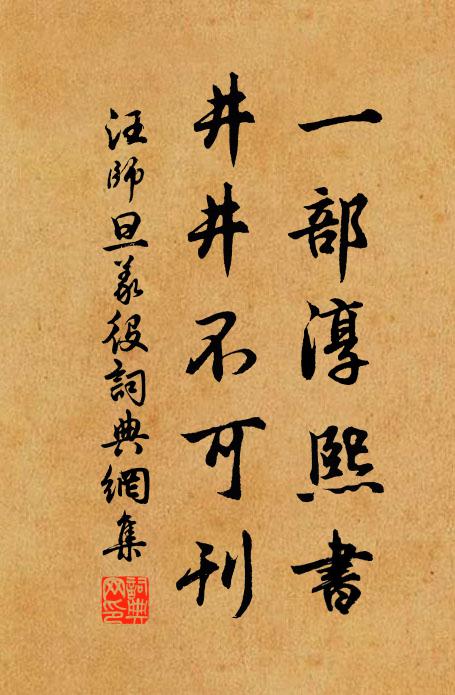 一部淳熙書
井井不可刊
汪師旦義役詞典網集
詞典網印